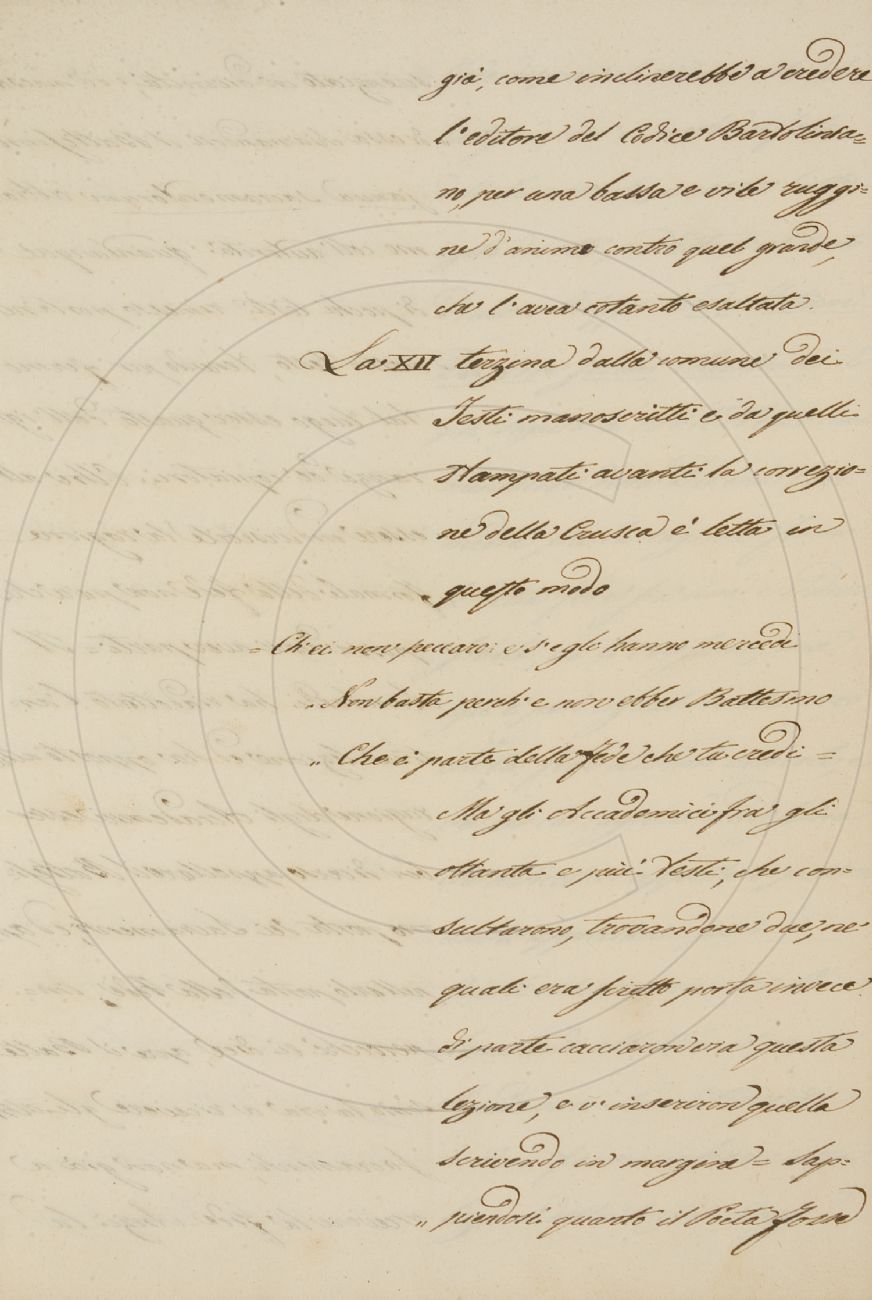 già, come inclinerebbe a credere
l'editore del Codice Bartolinia=
no, per una bassa e vile ruggi=
ne d'animo contro quel grande,
che l'avea cotanto esaltata.
La XII terzina dalla comune dei
Testi manoscritti e da quelli
stampati avanti la correzio=
ne della Crusca è letta in
questo modo
= Ch'ei non peccaro: e s'egli hanno mercedi
„ Non basta perch'e non ebber Battesmo
„ Che è parte della Fede che tu credi =
Ma gli Accademici fra gli
ottanta e più Testi, che con=
sultarono, trovandone due, ne'
quali era scritto porta invece
di parte cacciaron via questa
lezione, e v'inseriron quella
scrivendo in margine = Sap=
„ piendosi quanto il Poeta fosse